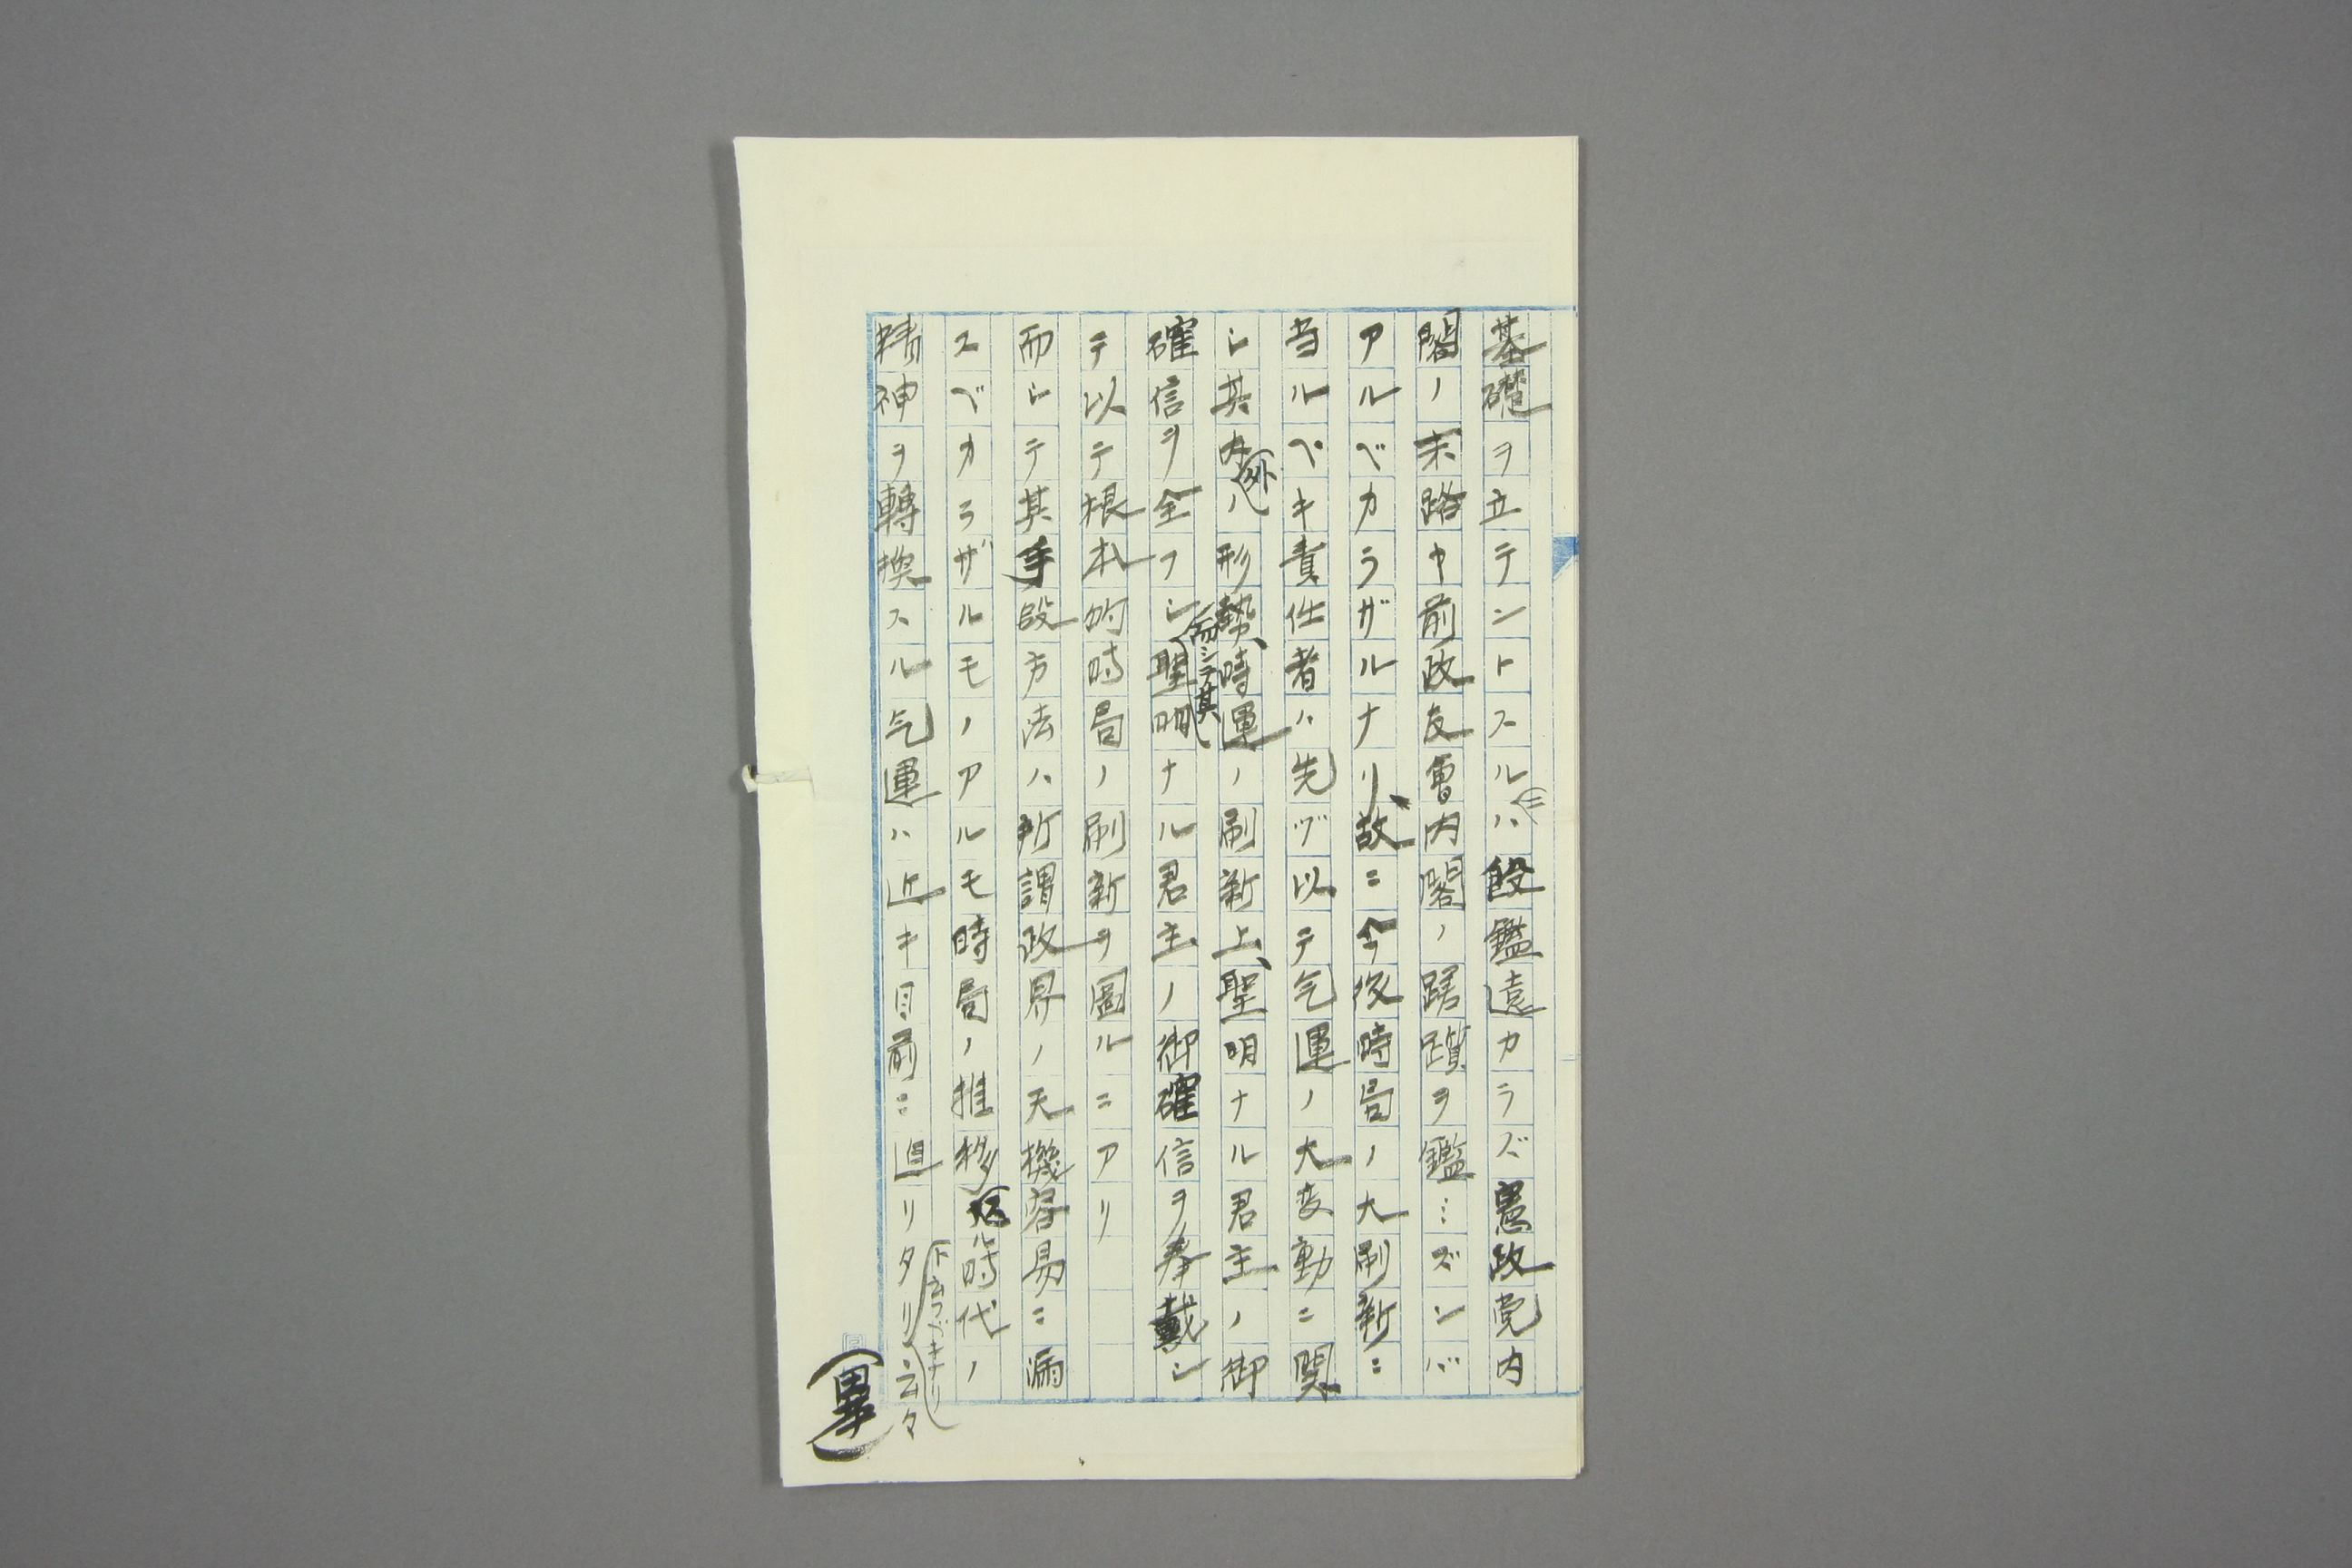 基礎ヲ立テントスルハ殷鑑遠カラズ憲政党内
閣ノ末路ヤ前政友會内閣ノ蹉躓ヲ鑑ミズンバ
アルベカラザルナリ、故ニ今後時局ノ大刷新ニ
当ルベキ責任者ハ先ヅ以テ気運ノ大変動ニ関
シ其内(外)ハ形勢、時運ノ刷新上、聖明ナル君主ノ御
確信ヲ全フシ(而シテ其)聖明ナル君主ノ御確信ヲ奉戴シ
テ以テ根本的時局ノ刷新ヲ圖ルニアリ
而シテ其手段方法ハ所謂政界ノ天機容易ニ漏
スベカラザルモノアルモ時局ノ推移ル時代ノ
精神ヲ轉換スル気運ハ近キ目前ニ迫リタリ(ト云フベキナリ)云々
(畢)